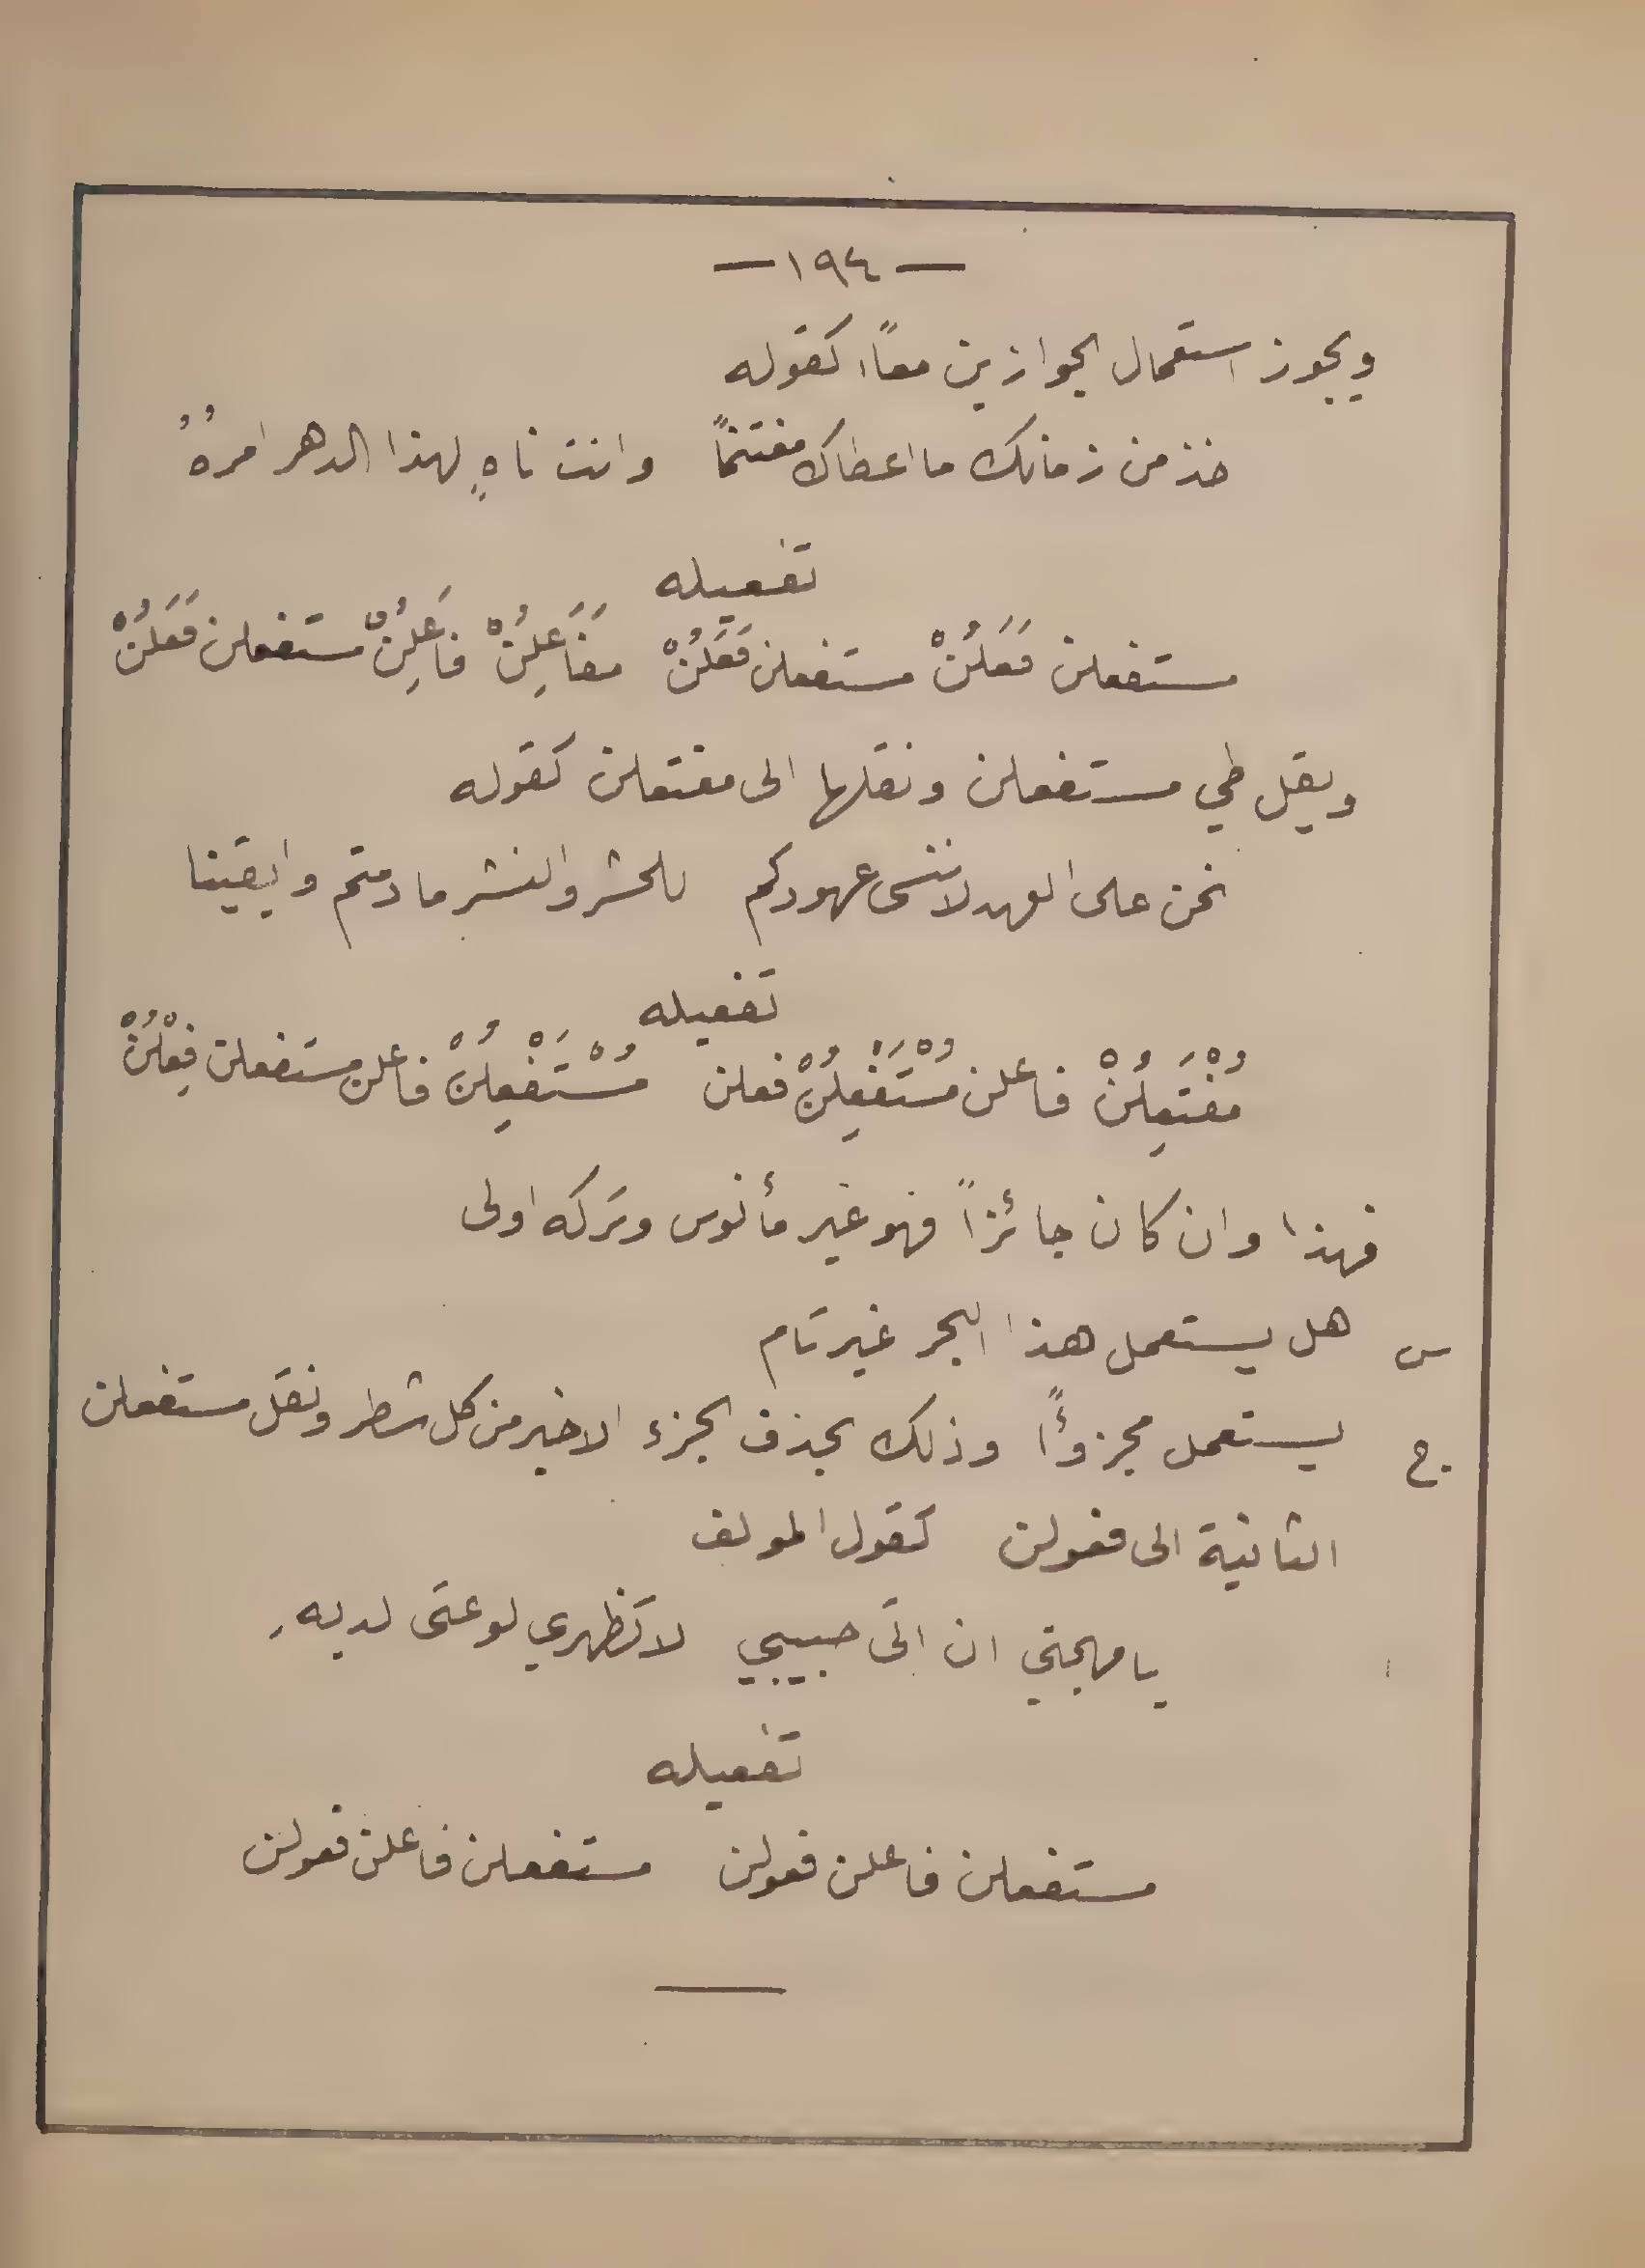 — ١٩٤ —
ويجوز استعمال الجوازين معاً كقوله
خذ من زمانك ما اعطاك مغتنماً وانت ناهٍ لهذا الدهر امرهُ
تفعيله
مستفعلن فَعَلُنْ مستفعلن فَعَلُنْ مفَاعَلِنُْ فاعَلِنُْ مستفعلن فَعَلُنْ
ويقل طي مستفعلن ونقلها الى مفتعلن كقوله
نحن على العهد لاننسى عهودكم للحشر والنشر ما دمتم وابقينا
تفعيله
مُفْتَعِلُنْ فاعلن مُسْتَفْعِلُنْ فعلن مُسْتَفْعِلُنْ فاعلن مستفعلن فِعْلُنْ
فهذا وان كان جائزاً فهو غير مأنوس وتركه اولى
س هل يستعمل هذا البحر غير تام
ج يستعمل مجزوءًا وذلك بحذف الجزء الاخير من كل شطر ونقل مستفعلن
الثانية الى فعولن كقول المولف
يا مهجتي ان اتى حبيبي لا تظهري لوعتى لديهِ
تفعيله
مستفعلن فاعلن فعولن مستفعلن فاعلن فعولن